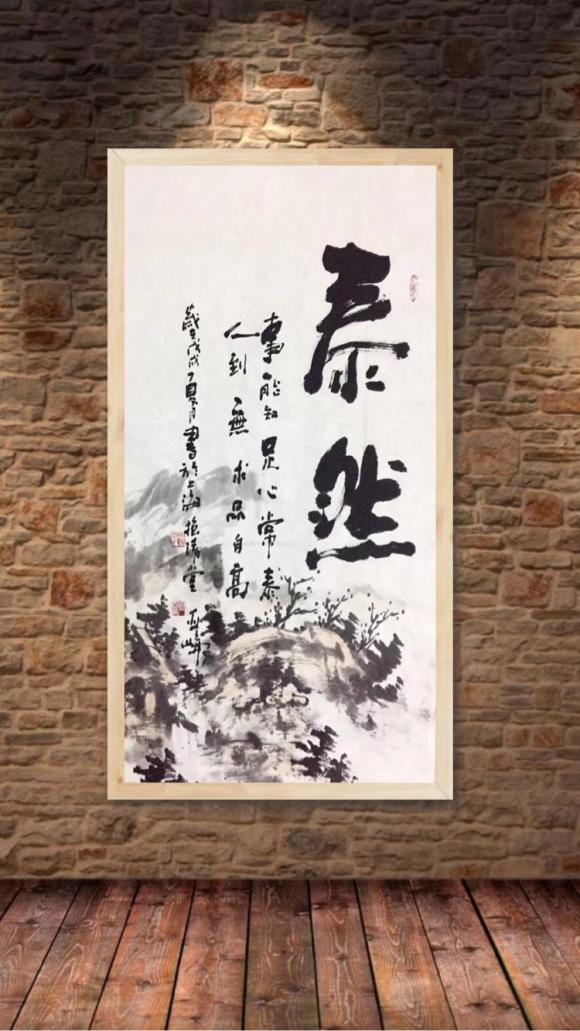 泰然
事能知足心常泰
人到無求品自高
歲在戊戌夏月書於上海堂